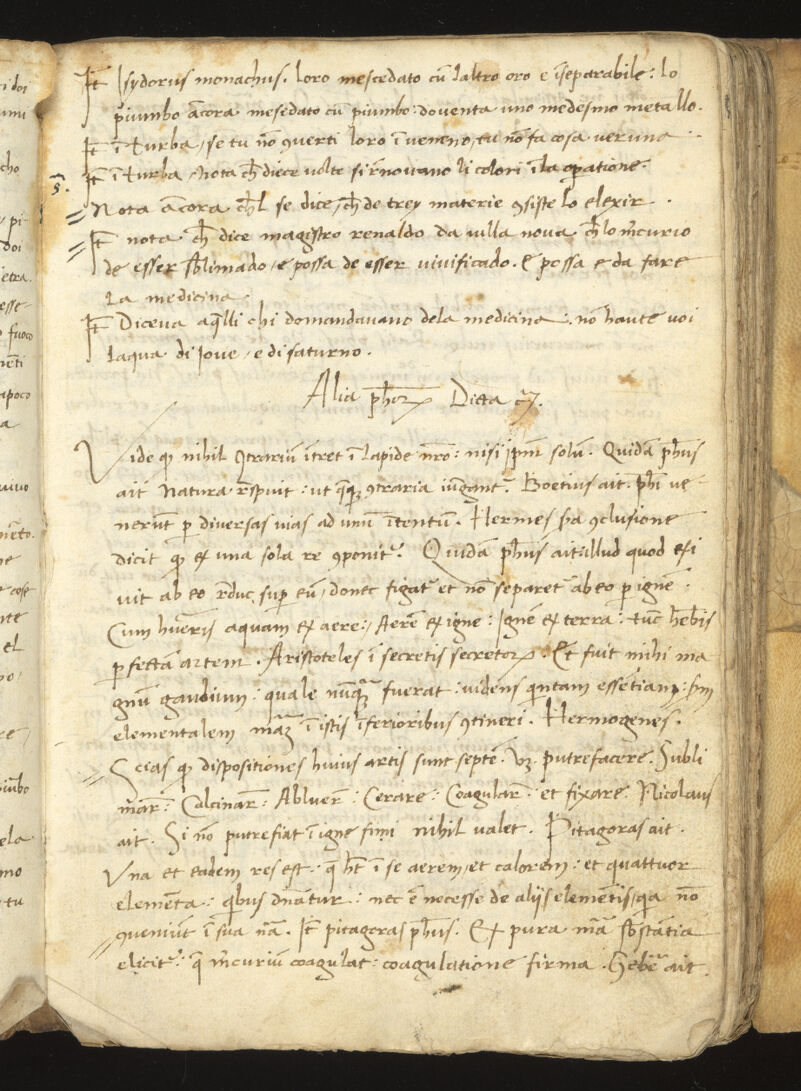 It̃ Isydorus monachus. loro mescedato cũ laltro oro e ĩseparabile: lo
piumbo ãcora mesedato cũ piumbo: doventa uno medesmo metallo.
It̃ ĩ turba, se tu nõ ꝯverti loro ĩ veneno, tu nõ fa cosa veruna
It̃ ĩ turba, Nota ch̃ diece volte si rñovano li colori ĩ la oꝑatione.
Nota ãcora ch̃l se dice, ch̃ de trey materie ꝯsiste lo elexir.
It̃ nota ch̃ dice magistro renaldo da villa nova ch̃ lo m̃curio
de esser sb̃limado, e possa de esser vivificado. E possa e da fare
La medicina.
It̃ Diceva aq̃lli chi domandavano dela medicina: nõ havite voi
laqua di Jove, e di saturno.
Alia ph̃oꝝ Dicta
Vide ꝙ nihil ꝯtrariũ ĩtret ĩ lapide nr̃o: nisi ip̃m solũ. Quidã ph̃us
ait Natura respuit: ut ꝯtraria iũgant᷑. Boetius ait. ph̃i ve
nerũt ꝑ diversas vias ad unũ ĩtentũ. Hermes sua ꝯclusione
dicit ꝙ ex una sola re ꝯponit᷑. Quidã ph̃us ait illud quod exi
vit ab eo r̃duc, suꝑ eũ, donec figat᷑ et nõ separet᷑ ab eo ꝑ ignẽ:
Cum hueris aquam ex aere: Aerẽ ex igne: Ignẽ ex terra: tũc h̃ebis
ꝑfectã artem. Aristoteles ĩ secretis secretoꝝ. Et fuit mihi ma
gnũ gaudium: quale nũq̃ fuerat: videns qĩntam essẽtiam:
elementalem ĩ istis ĩferioribus ꝯtineri. Hermogenes.
Scias ꝙ dispositiones huius artis sunt septẽ. vz. putrefacere. Subli
mar̃: Calcinar̃: Abluer̃: Cerare: Coagular̃: et fixare. Nicolaus
ait. Si nõ putrefiat ĩ igne fimi nihil valet. Pitagoras ait.
Una et eadem res est: q̃ h̃t ĩ se aerem, et calorem: et quattuor
elementa: qĩbus dñantur: nec ẽ necesse de alijs elemẽtis, qa nõ
ꝯveniũt ĩ sua nã. It̃ pitagoras ph̃us. Ex pura mã sb̃stãtia
elicit᷑: q̃ m̃curiũ coagulat: coagulatione firma. Geb᷑ ait